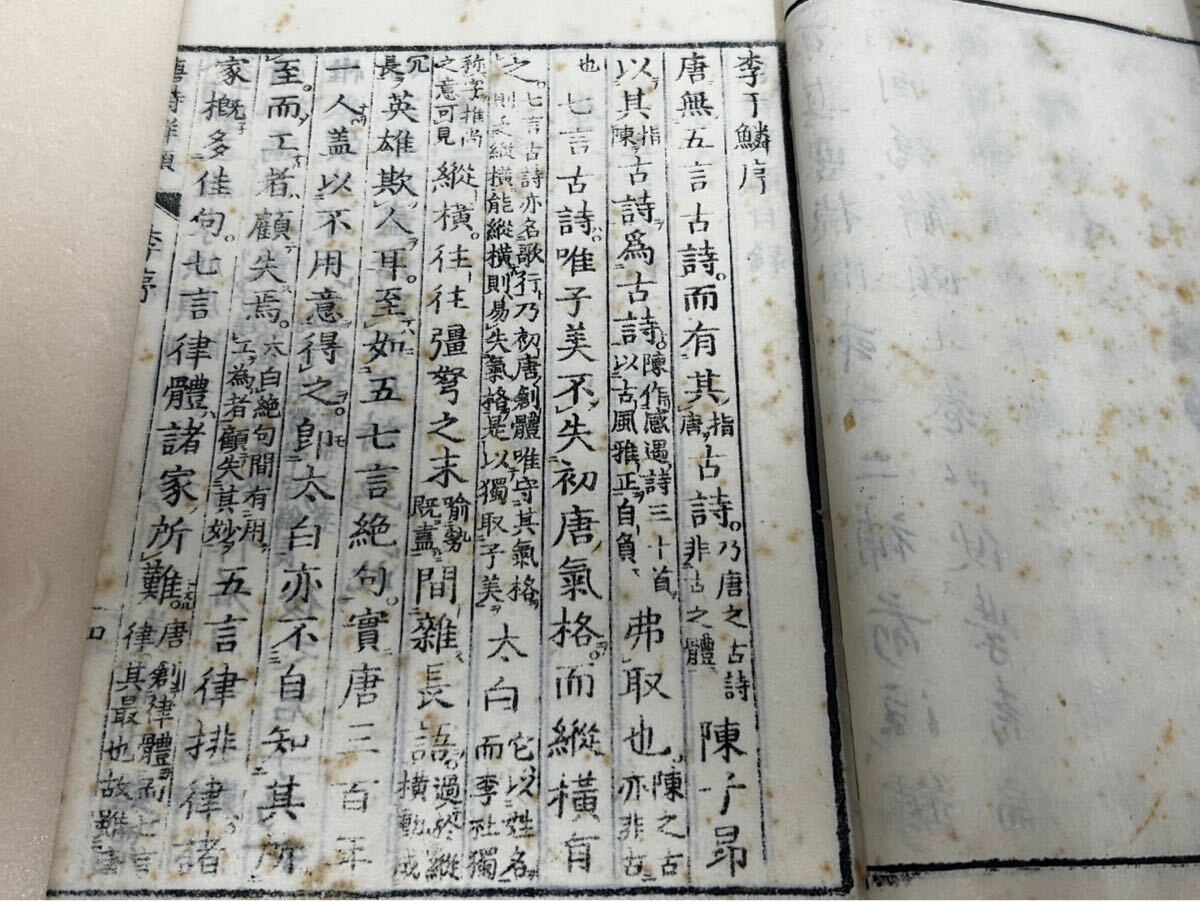 李于鱗序
唐無五言古詩而有其指唐古詩乃唐之古詩非古之體陳子昂
以其指陳古詩爲古詩陳作感遇詩三十首以古風雅正自負弗取也陳之古亦非古
也七言古詩唯子美不失初唐氣格而縱橫有
之七言古詩亦名歌行乃初唐創體唯守其氣格則乏縱橫能縱橫則易失氣格是以獨取子美太白它以姓名而李杜獨
称字推尚之意可見縱橫往往彊弩之末喻勢既盡間雜長語過於縱橫動成
冗長英雄欺人耳至如五七言絶句實唐三百年
一人蓋以不用意得之卽太白亦不自知其所
至而工者顧失焉太白絶句間有用工為者顧失其妙五言律排律諸
家概多佳句七言律體諸家所難唐創律體而七言律其最也故雖
唐詩
李序
四